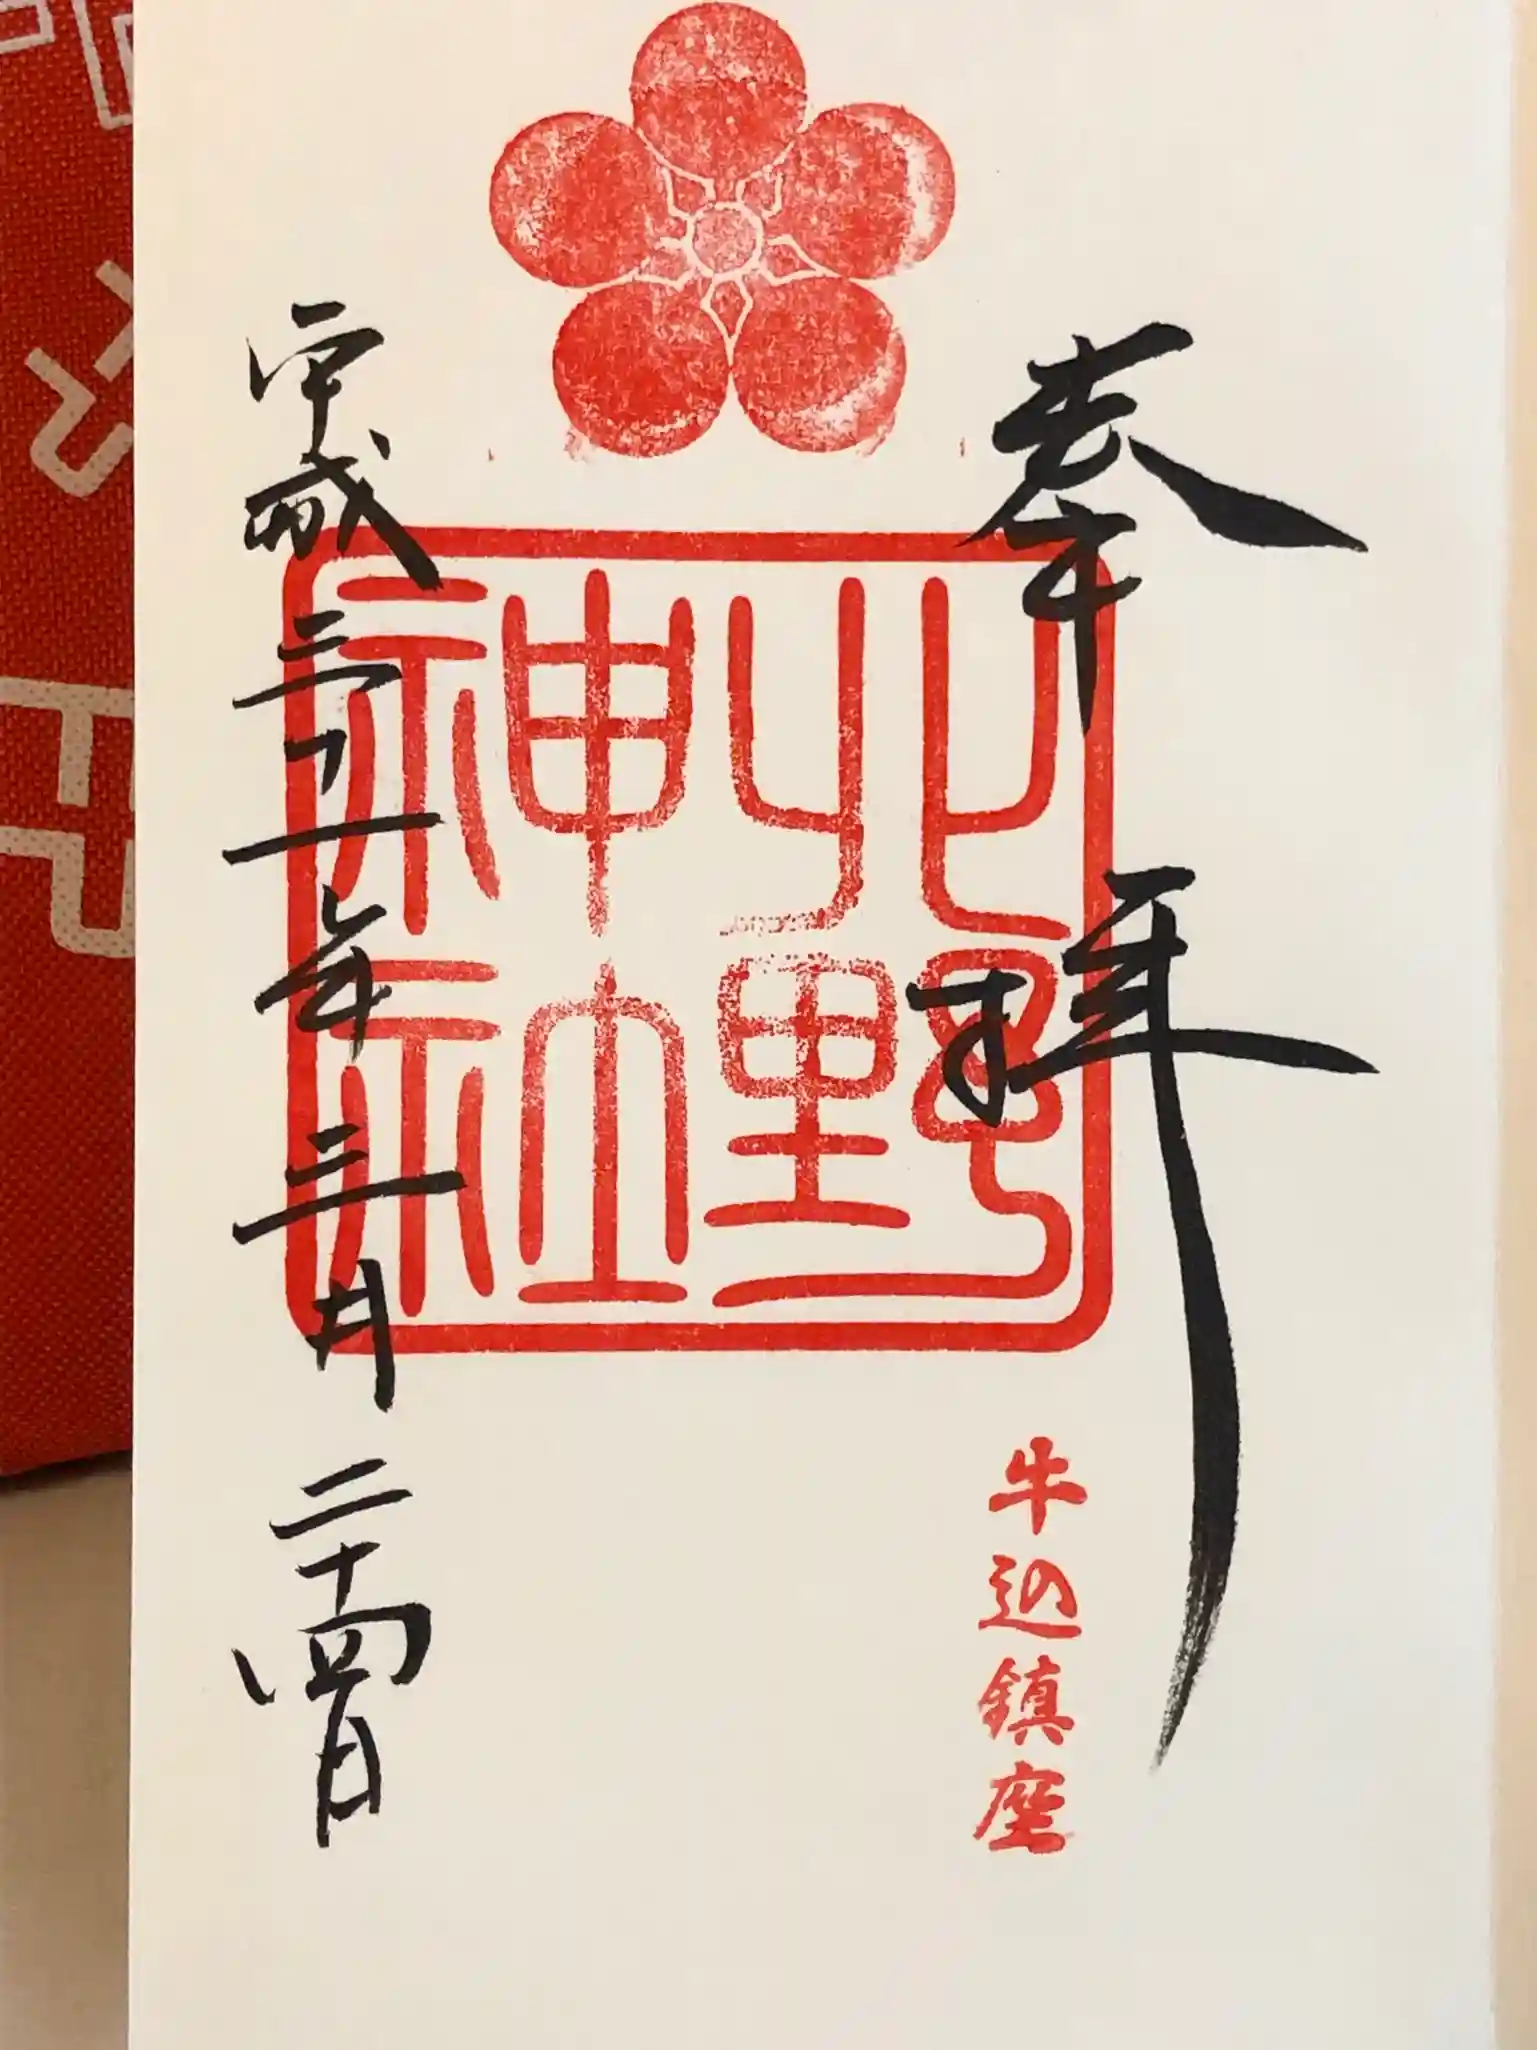 奉拝
牛込鎮座
北野
神社
平成三十一年三月二十四日